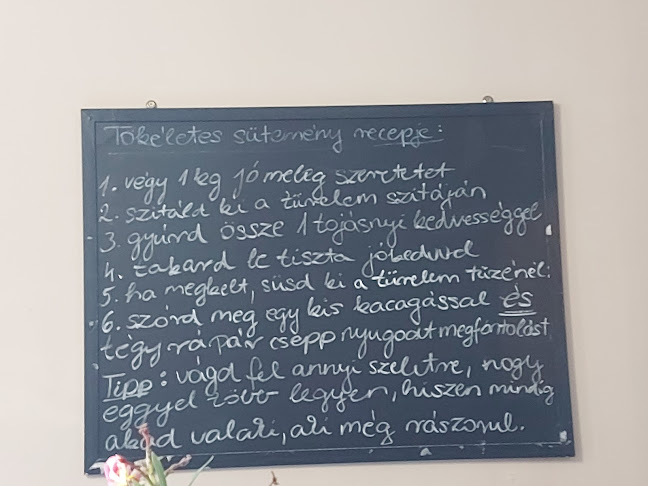 Tökéletes sütemény recepje:
1. végy 1 kg jó meleg szeretetet
2. szitáld ki a türelem szitáján
3. gyúrd össze 1 tojásnyi kedvességgel
4. takard le tiszta jókedvvel
5. ha megkelt, süsd ki a türelem tüzénél.
6. szórd meg egy kis kacagással és
tégy rá pár csepp nyugodt megfontolást
Tipp: vágd fel annyi szeletre, hogy
eggyel több legyen, hiszen mindig
akad valaki, aki még rászorul.